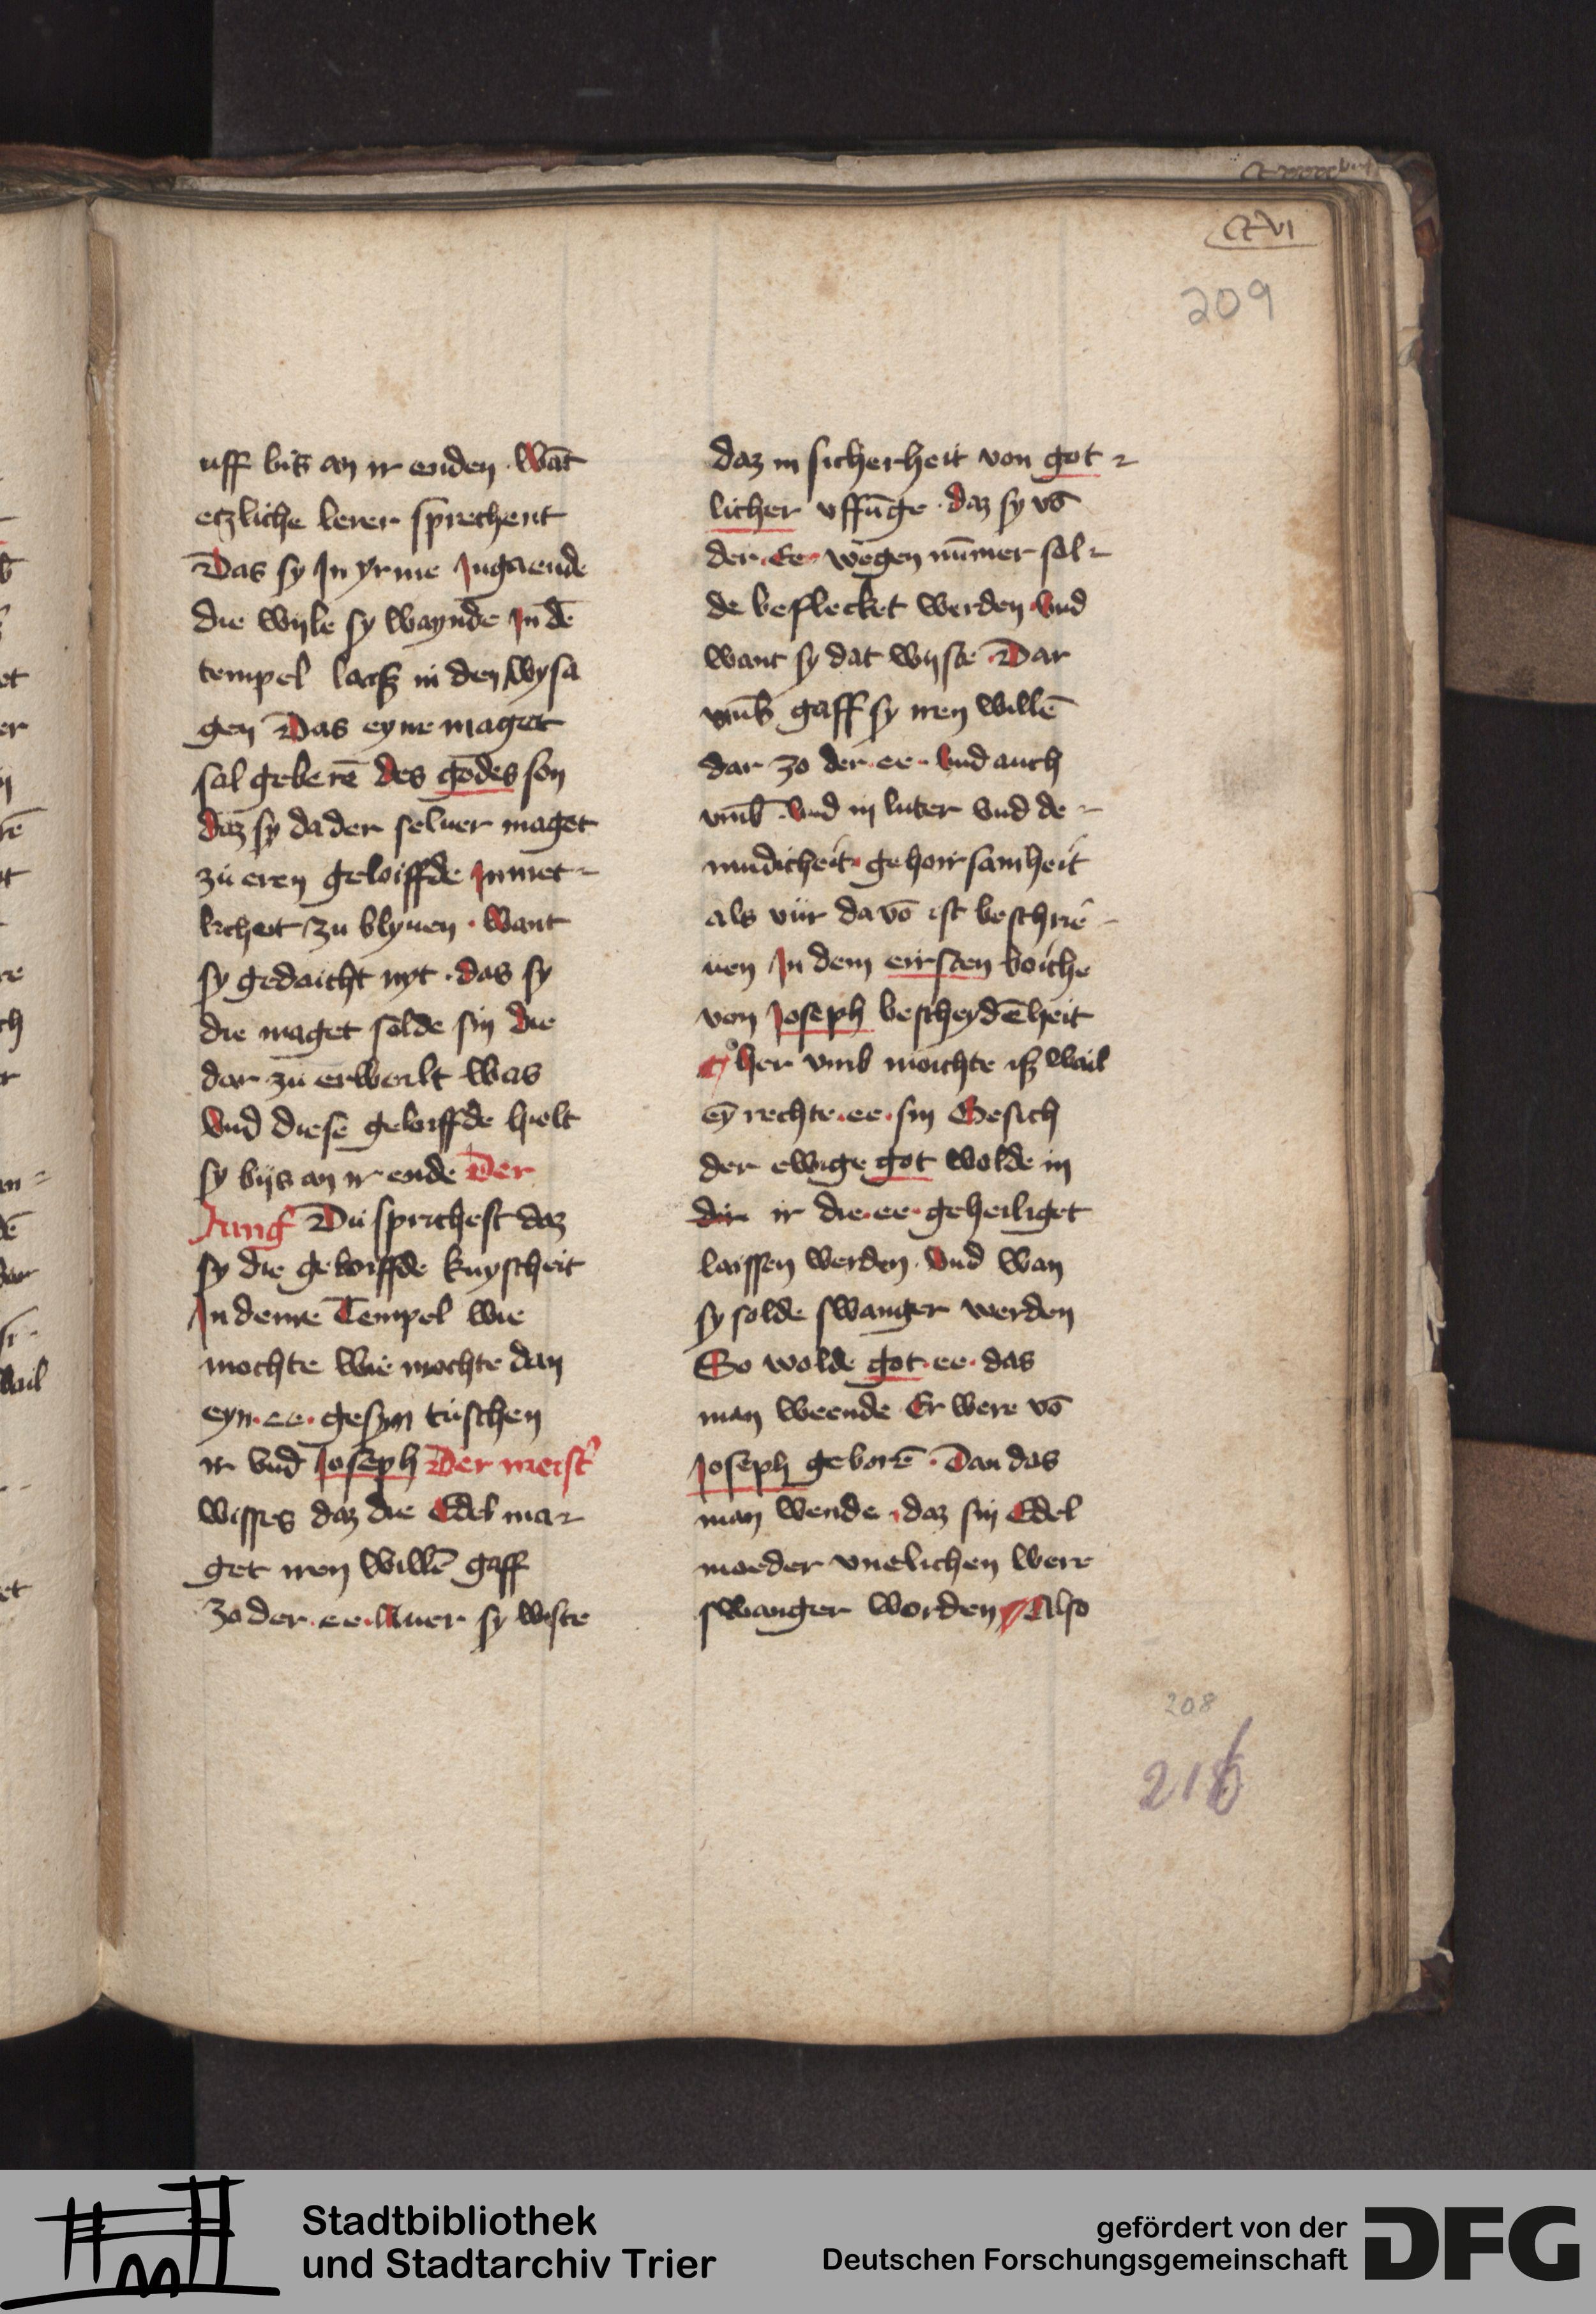 cxvi
209
uff bis an ir enden · wāt
etzliche lerer sprechent
Das sy In yrme Ingaende
die wyle sy waynde In dē
tempel laesz in den wysa
gen Das eyne maget
sal geberē des godes son
daz sy da der seluer maget
zu eren geloiffde Inmet-
licheit zu blyuen · want
sy gedaicht nyt · das sy
die maget solde sin die
dar zu erweilt was
vnd diese geloiffde hielt
sy bijs an ir ende Der
Jungͤ Du sprichest daz
sy die geloiffde kuyscheit
In deme Tempel wie
mochte wie mochte dan
eyn · ee · gesyn tuschen
ir vnd Joseph Der meistʾ
wisses daz die Edel ma-
get iren willē gaff
zo der · ee · Auer sy wiste
daz in sicherheit von got-
licher vffūge · daz sy vō
der · Ee · wegen nūmer sal-
de beflecket werden · vnd
want sy dat wijste · Dar
vmb gaff sy iren willē
dar zo der · ee · vnd auch
vmb · vnd in luter vnd de-
mudicheit · gehoirsamheit
als vur da vō ist beschrie-
uen In dem eirsten boiche
von Joseph bescheydēheit
her vmb moichte isz wail
eȳ rechte · ee · sin Gesich
der ewige got wolde in
ir die · ee · geheiliget
laissen werden · vnd wan
sy solde swanger werden
So wolde got · ee · das
man weende Er were vō
Joseph geborē · Dan das
man wende · daz sin Edel
moeder vnelichen were
swanger worden Also
208
216
Stadtbibliothek
und Stadtarchiv Trier
gefördert von der
Deutschen Forschungsgemeinschaft
DFG